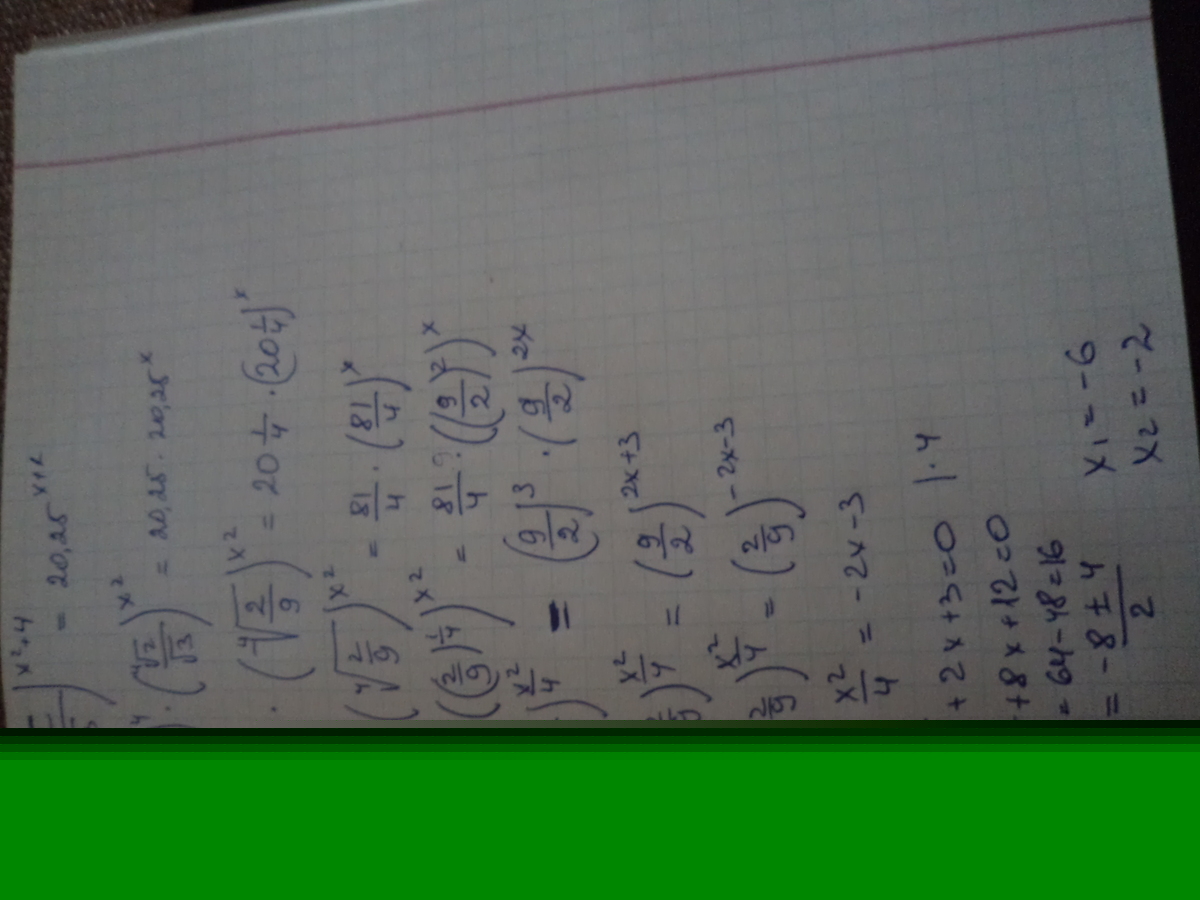 )^{x²+4} = 20,25^{x+1}
· (⁴√2/√3)^{x²} = 20,25 · 20,25^x
· (⁴√(2/9))^{x²} = 20 1/4 · (20 1/4)^x
(⁴√(2/9))^{x²} = 81/4 · (81/4)^x
((2/9)^{1/4})^{x²} = 81/4 · ((9/2)²)^x
)^{x²/4} = (9/2)^3 · (9/2)^{2x}
)^{x²/4} = (9/2)^{2x+3}
2/9)^{x²/4} = (2/9)^{-2x-3}
x²/4 = -2x-3
+ 2x+3=0 |·4
+8x+12=0
= 64-48=16
= (-8±4)/2 x₁=-6
x₂=-2